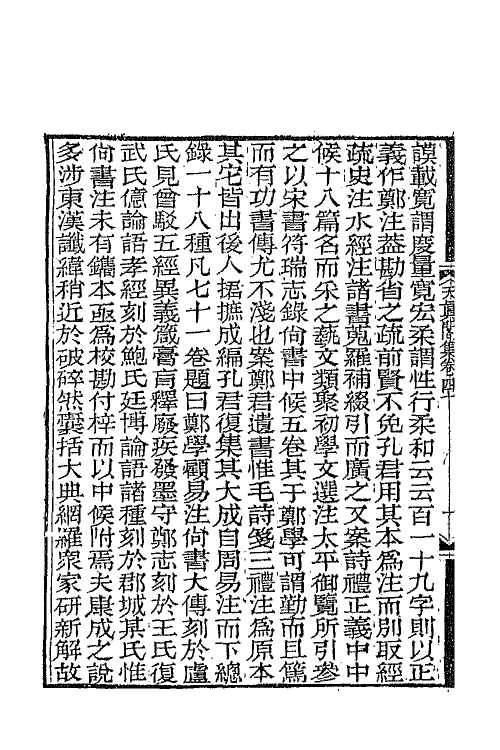 謨載寬謂度量寬宏柔謂性行柔和云云百一十九字則以正
義作鄭注葢勘省之疏前賢不免孔君用其本爲注而別取經
疏史注水經注諸書蒐羅補綴引而廣之又案詩禮正義中中
候十八篇名而采之藝文類聚初學文選注太平御覽所引參
之以宋書符瑞志錄尙書中候五卷其于鄭學可謂勤而且篤
而有功書傳尤不淺也案鄭君遺書惟毛詩箋三禮注爲原本
其它皆出後人捃摭成編孔君復集其大成自周易注而下總
錄一十八種凡七十一卷題曰鄭學顧易注尙書大傳刻於盧
氏見曾駁五經異義箴膏肓釋廢疾發墨守鄭志刻於王氏復
武氏億論語孝經刻於鮑氏廷博論語諸種刻於郡城某氏惟
尙書注未有鐫本亟爲校勘付梓而以中候附焉夫康成之說
多涉東漢讖緯稍近於破碎然囊括大典網羅衆家硏新解故
天眞閣集卷四十
十一